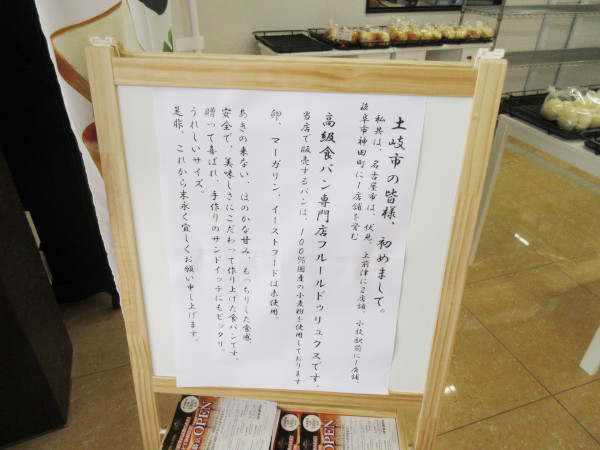 土岐市の皆様、初めまして。
私共は、名古屋市は、伏見、上前津に2店舗、小牧駅前に1店舗、
岐阜市神田町に1店舗を営む
高級食パン専門店フルールドゥリュクスです。
当店で販売するパンは、100%国産の小麦粉を使用しております
卵、マーガリン、イーストフードは未使用。
あきの来ない、ほのかな甘み、もっちりした食感、
安全で、美味しさにこだわって作り上げた食パンです。
贈って喜ばれ、手作りのサンドイッチにもピッタリ。
うれしいサイズ。
是非、これから末永く宜しくお願い申し上げます。
OPEN
OPEN